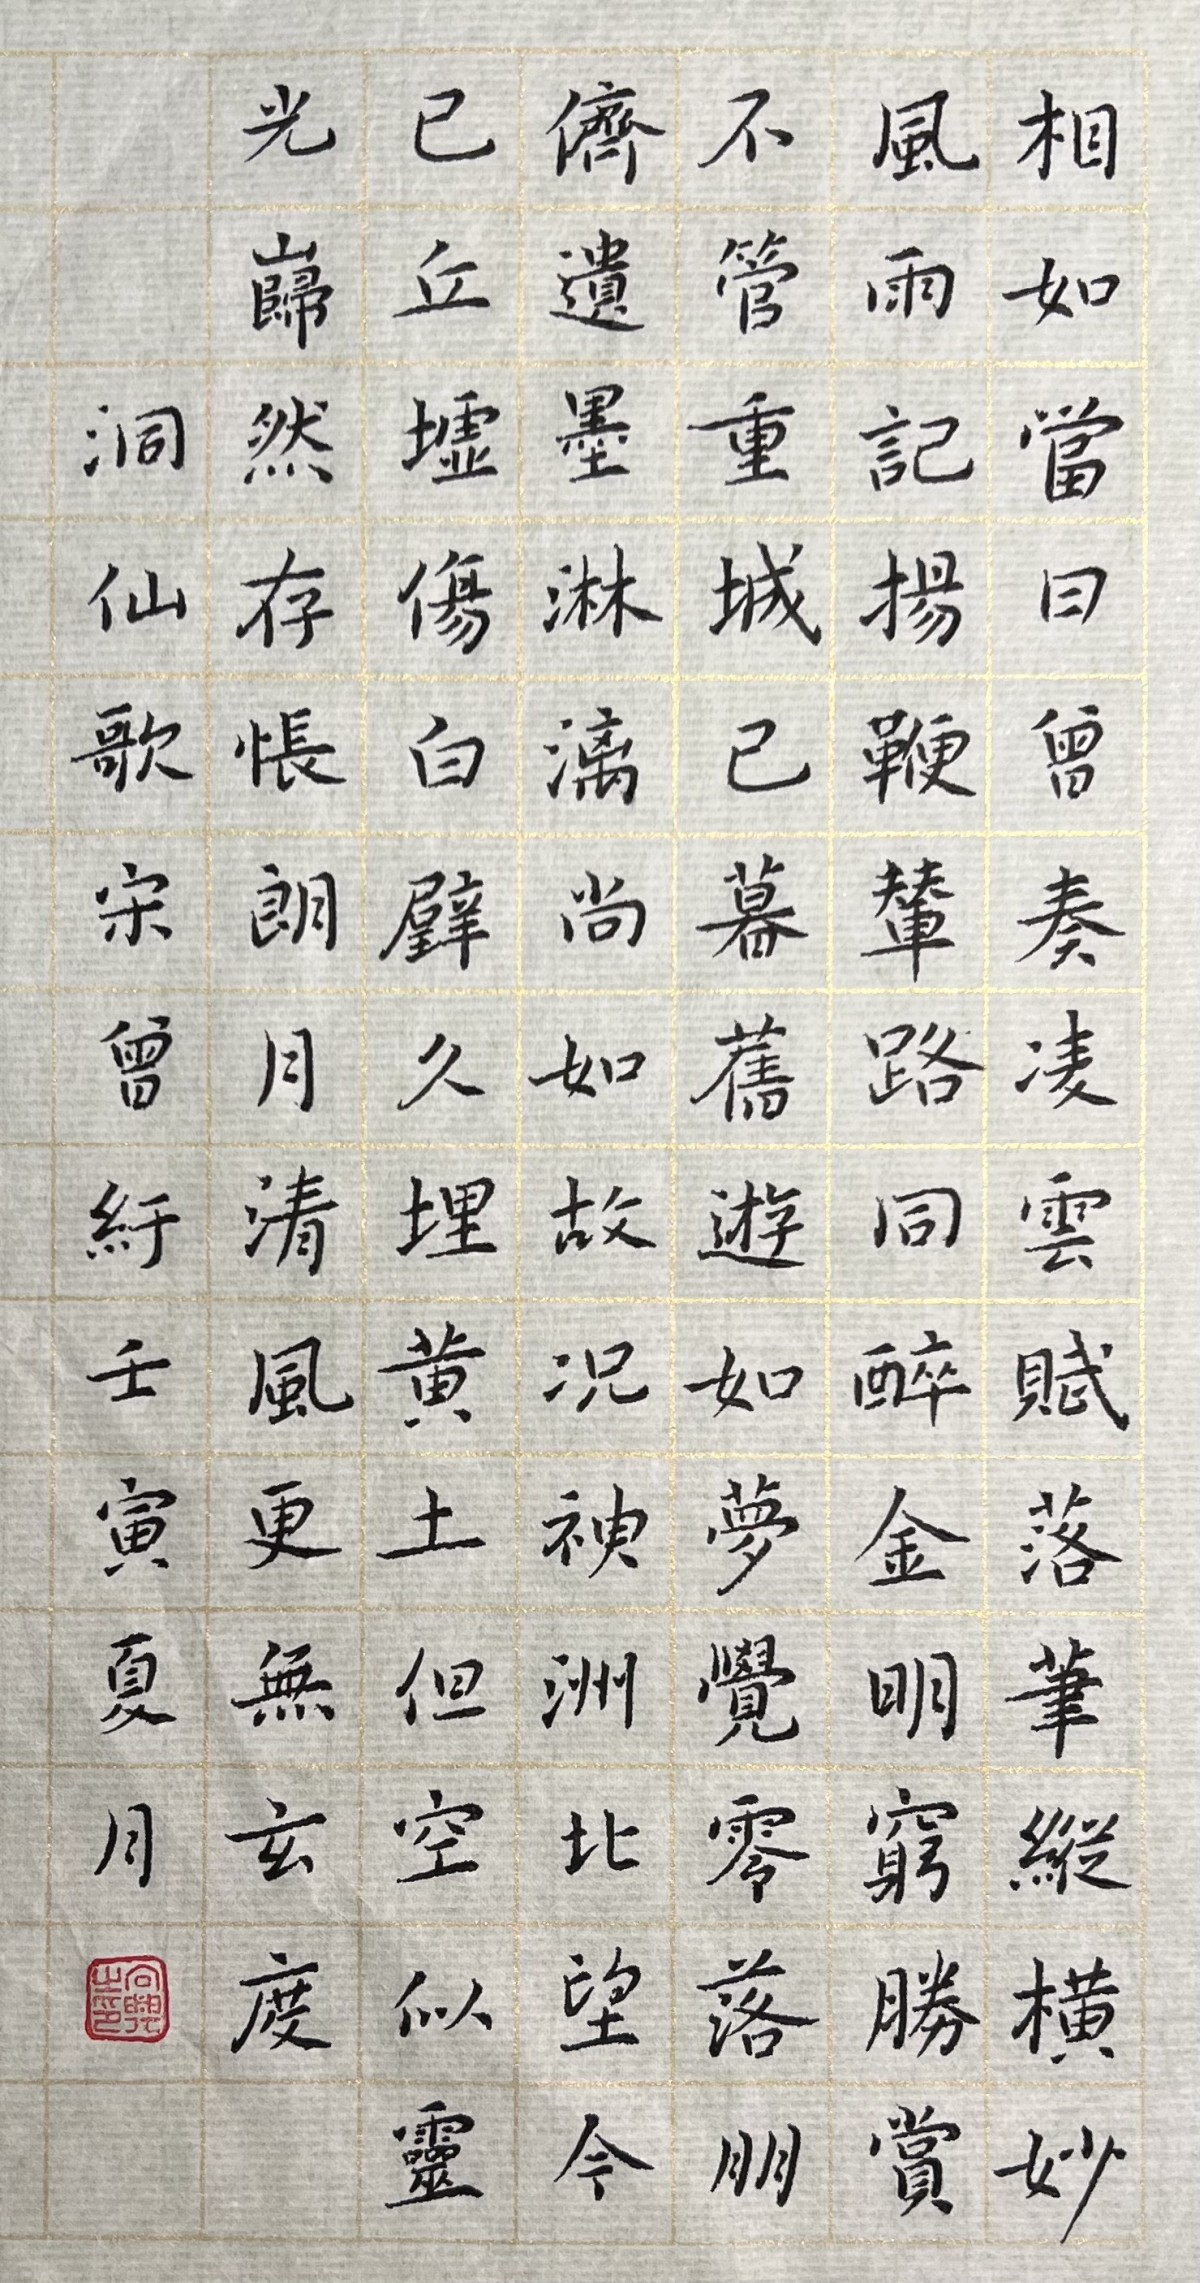 相如當日曾奏凌雲賦落筆縱橫妙
風雨記揚鞭輦路同醉金明窮勝賞
不管重城已暮舊遊如夢覺零落朋
儕遺墨淋漓尚如故况神洲北望今
已丘墟傷白璧久埋黄土但空似靈
光巋然存悵朗月清風更無玄度
洞仙歌宋曾紆壬寅夏月